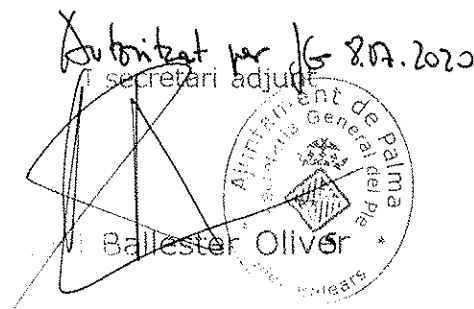 Autoritzat per JG 8.07.2020
secretari adjunt
Ballester Oliver
Ajuntament de Palma
General del Ple
Balears